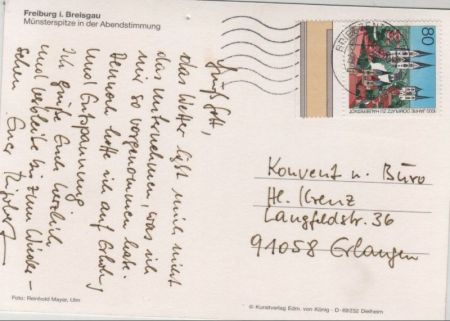 Freiburg i. Breisgau
Münsterspitze in der Abendstimmung
Grüß Gott,
das Wetter läßt mich nicht
das unternehmen, was ich
mir so vorgenommen habe.
Dennoch hoffe ich auf Erholung
und Entspannung.
Ich grüße Euch herzlich
und verbleibe bis zum Wieder-
sehen Euer
80
Konvent u. Büro
Hl. Kreuz
Langfeldstr. 36
91058 Erlangen
Foto: Reinhold Mayer, Ulm
© Kunstverlag Edm. von König · D-69232 Dielheim